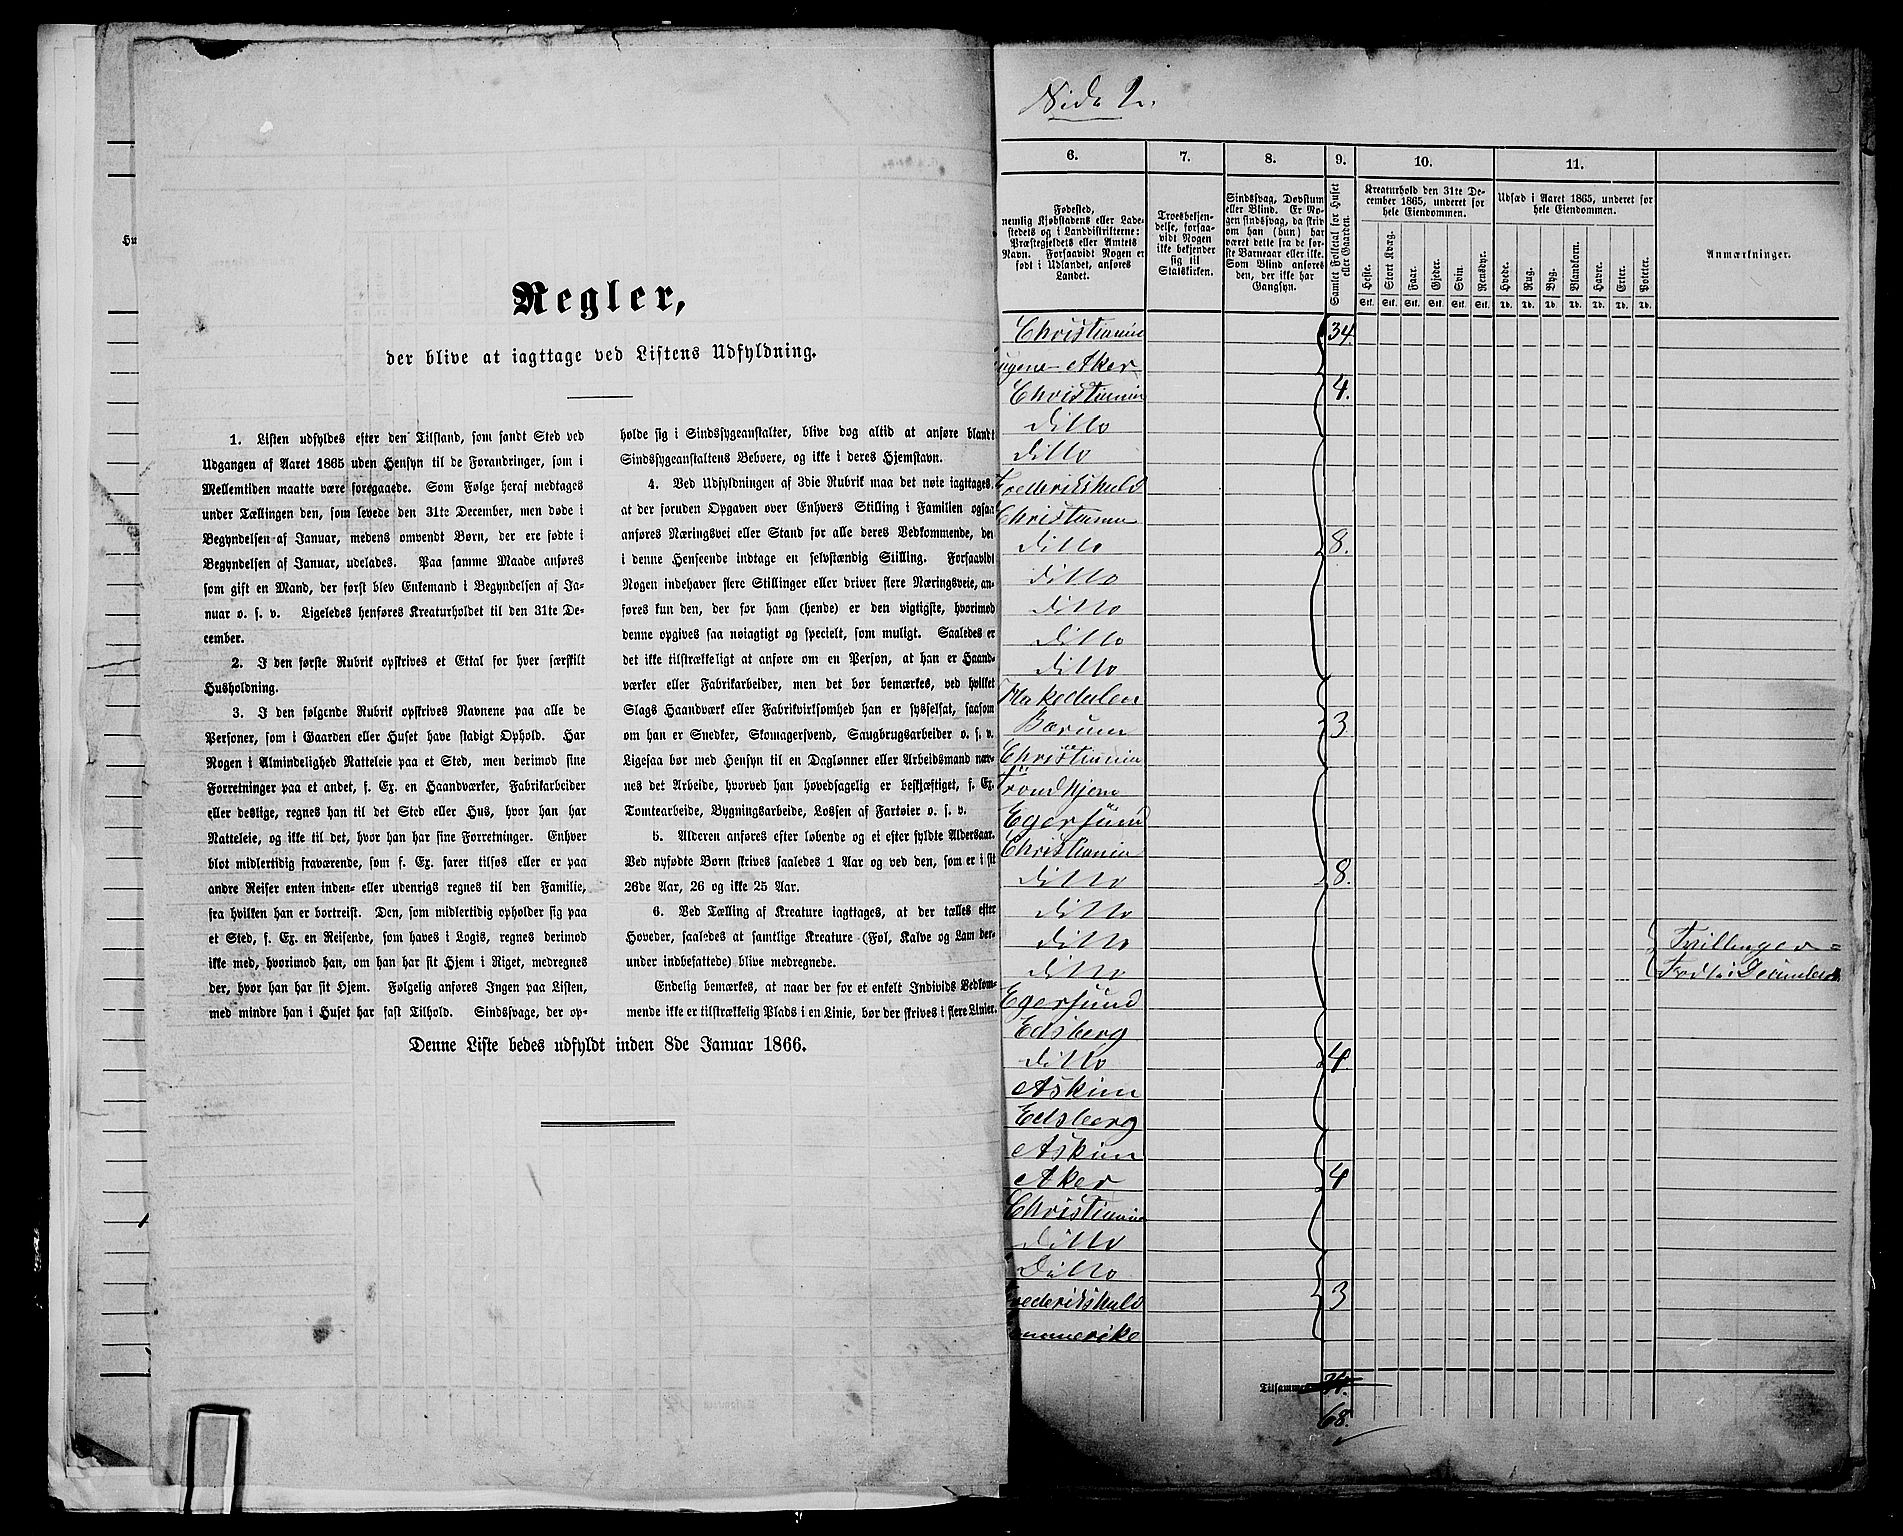 Regler,
der blive at iagttage ved Listens Udfyldning.
1. Listen udfyldes efter den Tilstand, som fandt Sted ved
Udgangen af Aaret 1865 uden Hensyn til de Forandringer, som i
Mellemtiden maatte være foregaaede. Som Følge heraf medtages
under Tællingen den, som levede den 31te December, men døde i
Begyndelsen af Januar, medens omvendt Børn, der ere fødte i
Begyndelsen af Januar, udelades. Paa samme Maade anføres
som gift en Mand, der først blev Enkemand i Begyndelsen af Ja-
nuar o. s. v. Ligeledes henføres Kreaturholdet til den 31te De-
cember.
2. I den første Rubrik opskrives et Ettal for hver særskilt
Husholdning.
3. I den følgende Rubrik opskrives Navnene paa alle de
Personer, som i Gaarden eller Huset have stadigt Ophold. Har
Nogen i Almindelighed Natteleie paa et Sted, men derimod sine
Forretninger paa et andet, f. Ex. en Haandværker, Fabrikarbeider
eller deslige, regnes han til det Sted eller Hus, hvor han har
Natteleie, og ikke til det, hvor han har sine Forretninger. Enhver
blot midlertidig fraværende, som f. Ex. farer tilsøs eller er paa
andre Reiser enten inden- eller udenrigs regnes til den Familie,
fra hvilken han er bortreist. Den, som midlertidig opholder sig paa
et Sted, f. Ex. en Reisende, som haves i Logis, regnes derimod
ikke med, hvorimod han, om han har sit Hjem i Riget, medregnes
der, hvor han har sit Hjem. Følgelig anføres Ingen paa Listen,
med mindre han i Huset har fast Tilhold. Sindssvage, der op-
holde sig i Sindssygeanstalter, blive dog altid at anføre blandt
Sindssygeanstaltens Beboere, og ikke i deres Hjemstavn.
4. Ved Udfyldningen af 3die Rubrik maa det nøie iagttages,
at der foruden Opgaven over Enhvers Stilling i Familien ogsaa
anføres Næringsvei eller Stand for alle deres Vedkommende, der
i denne Henseende indtage en selvstændig Stilling. Forsaavidt
Nogen indehaver flere Stillinger eller driver flere Næringsveie, an-
føres kun den, der for ham (hende) er den vigtigste, hvorimod
denne opgives saa nøiagtigt og specielt, som muligt. Saaledes er
det ikke tilstrækkeligt at anføre om en Person, at han er Haand-
værker eller Fabrikarbeider, men det bør bemærkes, ved hvilket
Slags Haandværk eller Fabrikvirksomhed han er sysselsat, saasom
om han er Snedker, Skomagersvend, Saugbrugsarbeider o. s. v.
Ligesaa bør med Hensyn til en Daglønner eller Arbeidsmand næv-
nes det Arbeide, hvorved han hovedsagelig er beskjæftiget, f. Ex.
Tomtearbeide, Bygningsarbeide, Lossen af Fartøier o. s. v.
5. Alderen anføres efter løbende og ei efter fyldte Aldersaar.
Ved nyfødte Børn skrives saaledes 1 Aar og ved den, som er i sit
26de Aar, 26 og ikke 25 Aar.
6. Ved Tælling af Kreature iagttages, at der tælles efter
Hoveder, saaledes at samtlige Kreature (Føl, Kalve og Lam der-
under indbefattede) blive medregnede.
Endelig bemærkes, at naar der for et enkelt Individs Vedkom-
mende ikke er tilstrækkelig Plads i en Linie, bør der skrives i flere Linier.
Denne Liste bedes udfyldt inden 8de Januar 1866.
Side 2.
6. 7. 8. 9. 10. 11.
Fødested,
nemlig Kjøbstadens eller Lade-
stedets og i Landdistrikterne:
Præstegjeldets eller Amtets
Navn. Forsaavidt Nogen er
født i Udlandet, anføres
Landet.
Troesbekjen-
delse, forsaa-
vidt Nogen
ikke bekjender
sig til
Statskirken.
Sindssvag, Døvstum
eller Blind. Er No-
gen sindssvag, da skriv
om han (hun) har
været dette fra de før-
ste Barneaar eller ikke.
Som Blind anføres
den, der ikke har
Gangsyn.
Samlet Folketal for Huset
eller Gaarden.
Kreaturhold den 31te De-
cember 1865, underet for
hele Eiendommen.
Heste. Stort Kvæg. Faar. Gjeder. Svin. Rensdyr.
Stk. Stk. Stk. Stk. Stk. Stk.
Udsæd i Aaret 1865, underet for
hele Eiendommen.
Hvede. Rug. Byg. Blandkorn. Havre. Erter. Poteter.
Td. Td. Td. Td. Td. Td. Td.
Anmærkninger.
Christiania 34
Aker
Christiania 4.
ditto
ditto
Frederikshald
Christiania
ditto 8.
ditto
ditto
ditto
ditto
Hakedalen
Bærum 3
Christiania
Trondhjem
Egersund
Christiania
ditto 8.
ditto
ditto Tvillinger =
ditto Født i December
Egersund
Edsberg
ditto 4
Askim
Edsberg
Askim
Aker 4
Christiania
ditto
ditto
Frederikshald 3
Tilsammen
68.